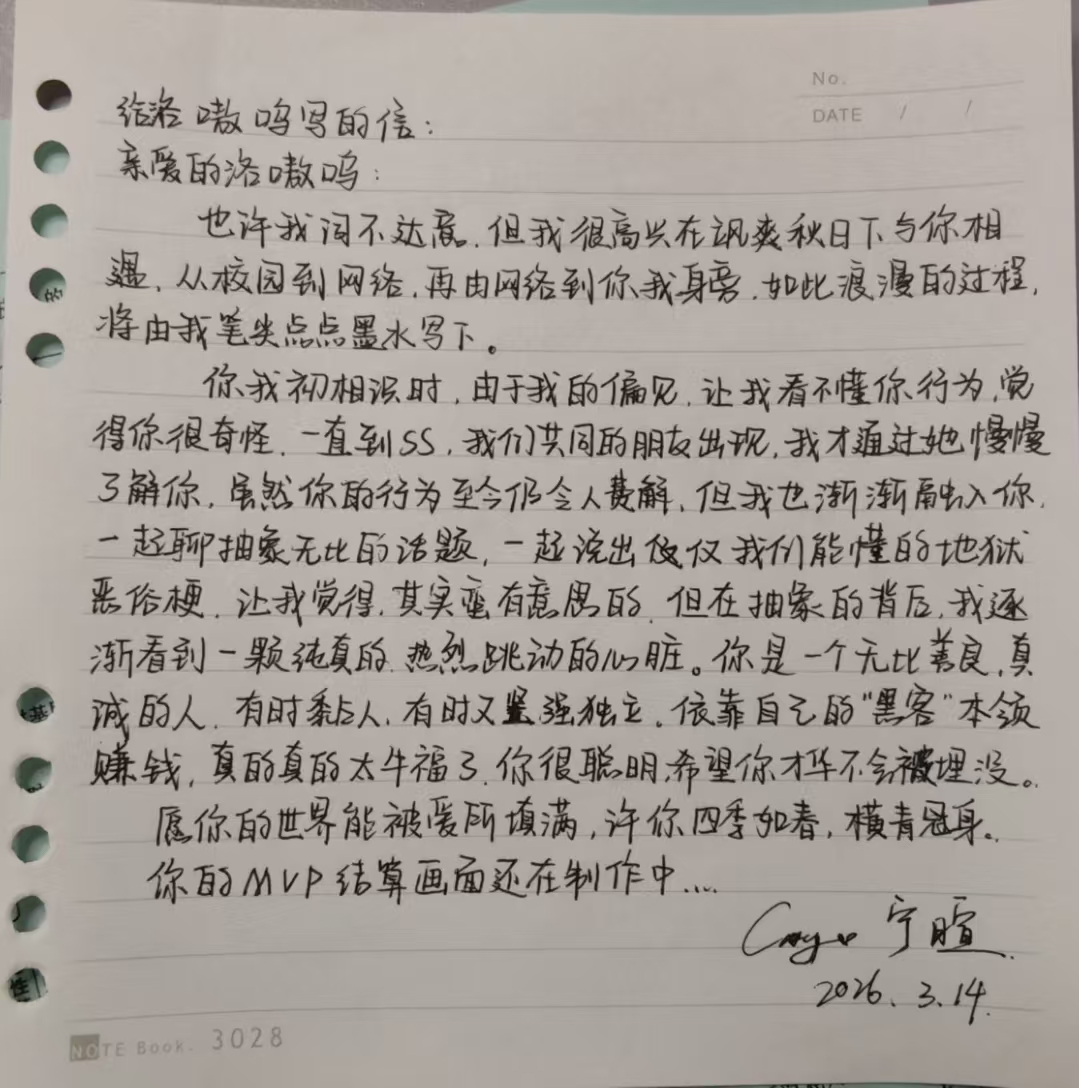 No.
DATE / /
给洛嗷呜写的信：
亲爱的洛嗷呜：
也许我词不达意，但我很高兴在飒爽秋日下与你相
遇，从校园到网络，再由网络到你我身旁，如此浪漫的过程，
将由我笔尖点点墨水写下。
你我初相识时，由于我的偏见，让我看不懂你行为，觉
得你很奇怪，一直到SS，我们共同的朋友出现，我才通过她慢慢
了解你，虽然你的行为至今仍令人费解，但我也渐渐融入你，
一起聊抽象无比的话题，一起说出仅仅我们能懂的地狱
恶俗梗，让我觉得，其实蛮有意思的，但在抽象的背后，我逐
渐看到一颗纯真的、热烈跳动的心脏。你是一个无比善良，真
诚的人，有时黏人，有时又坚强独立。依靠自己的"黑客"本领
赚钱，真的真的太牛福了，你很聪明，希望你才华不会被埋没。
愿你的世界能被爱所填满，许你四季如春，横青冠身。
你的MVP结算画面还在制作中....
宁暄
2026.3.14.
NOTE Book. 3028